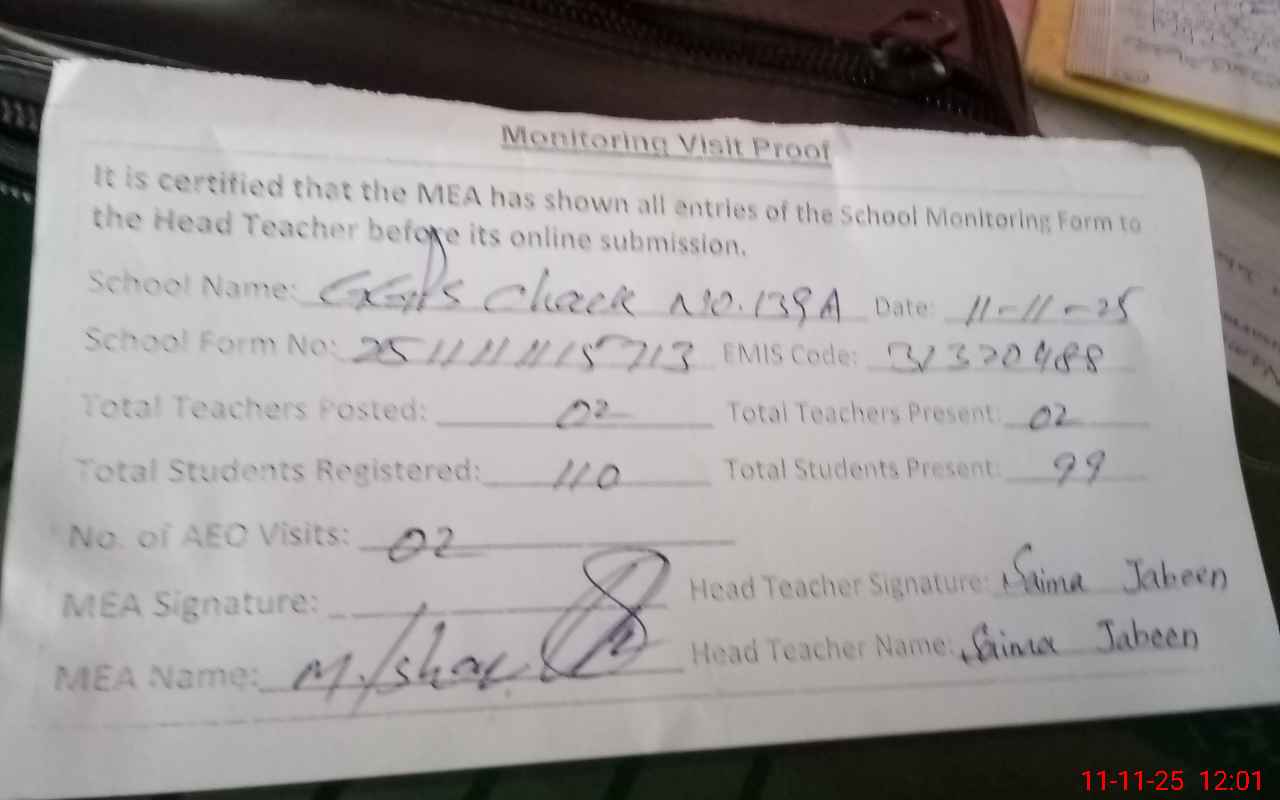 Monitoring Visit Proof
It is certified that the MEA has shown all entries of the School Monitoring Form to
the Head Teacher before its online submission.
School Name: GGPS Chack No. 139A Date: 11-11-25
School Form No: 25111111115713 EMIS Code: 31320488
Total Teachers Posted: 02 Total Teachers Present: 02
Total Students Registered: 110 Total Students Present: 99
No. of AEO Visits: 02
MEA Signature: Head Teacher Signature: Saima Jabeen
MEA Name: M. Head Teacher Name: Saima Jabeen
11-11-25 12:01